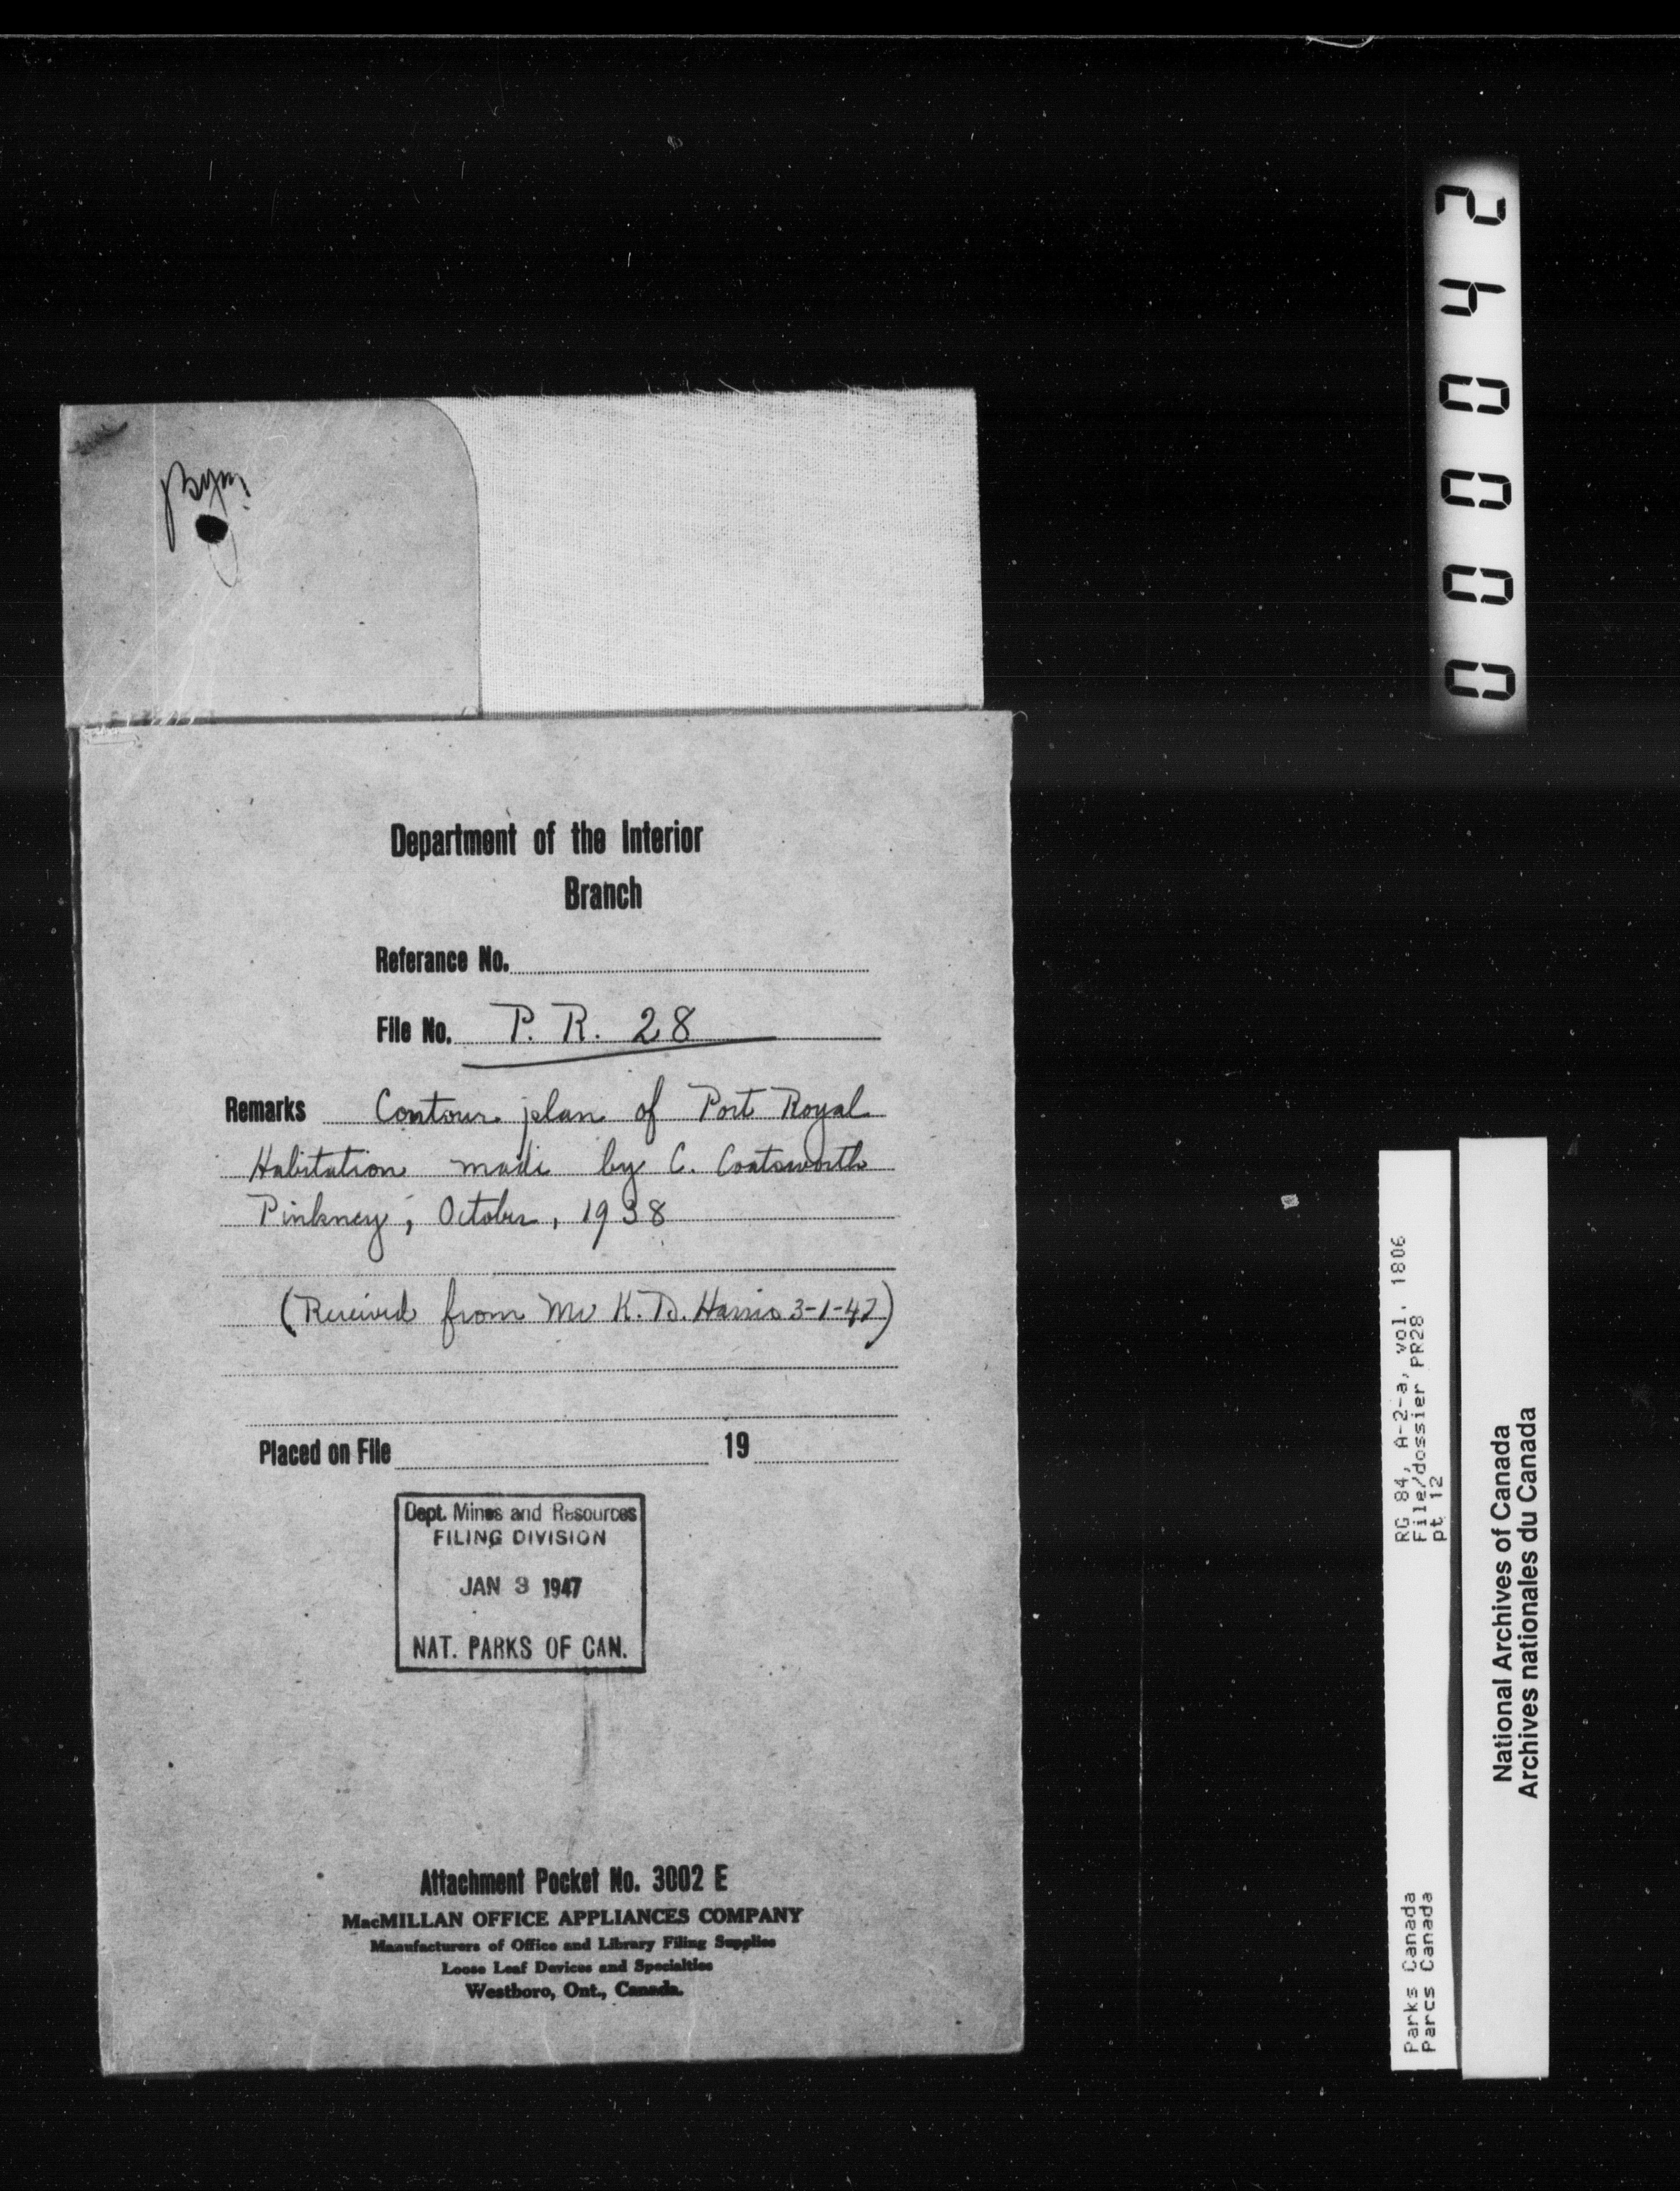 Department of the Interior
Branch
Referance No.
File No. P. R. 28
Remarks Contour plan of Port Royal
Habitation made by C. Coatsworth
Pinkney, October, 1938
(Received from Mr K. D. Harris 3-1-47)
Placed on File 19
Dept. Mines and Resources
FILING DIVISION
JAN 3 1947
NAT. PARKS OF CAN.
Attachment Pocket No. 3002 E
MacMILLAN OFFICE APPLIANCES COMPANY
Manufacturers of Office and Library Filing Supplies
Loose Leaf Devices and Specialties
Westboro, Ont., Canada.
000042
RG 84, A-2-a, vol. 1806
File/dossier PR28
pt 12
Parks Canada
Parcs Canada
National Archives of Canada
Archives nationales du Canada